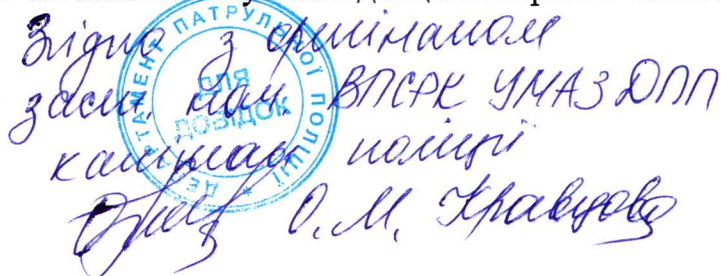 Згідно з оригіналом
заст. нач. ВПСРК УМАЗ ДПП
капітан поліції
О.М. Кравцова
ДЕПАРТАМЕНТ ПАТРУЛЬНОЇ ПОЛІЦІЇ
ДЛЯ
ДОВІДОК